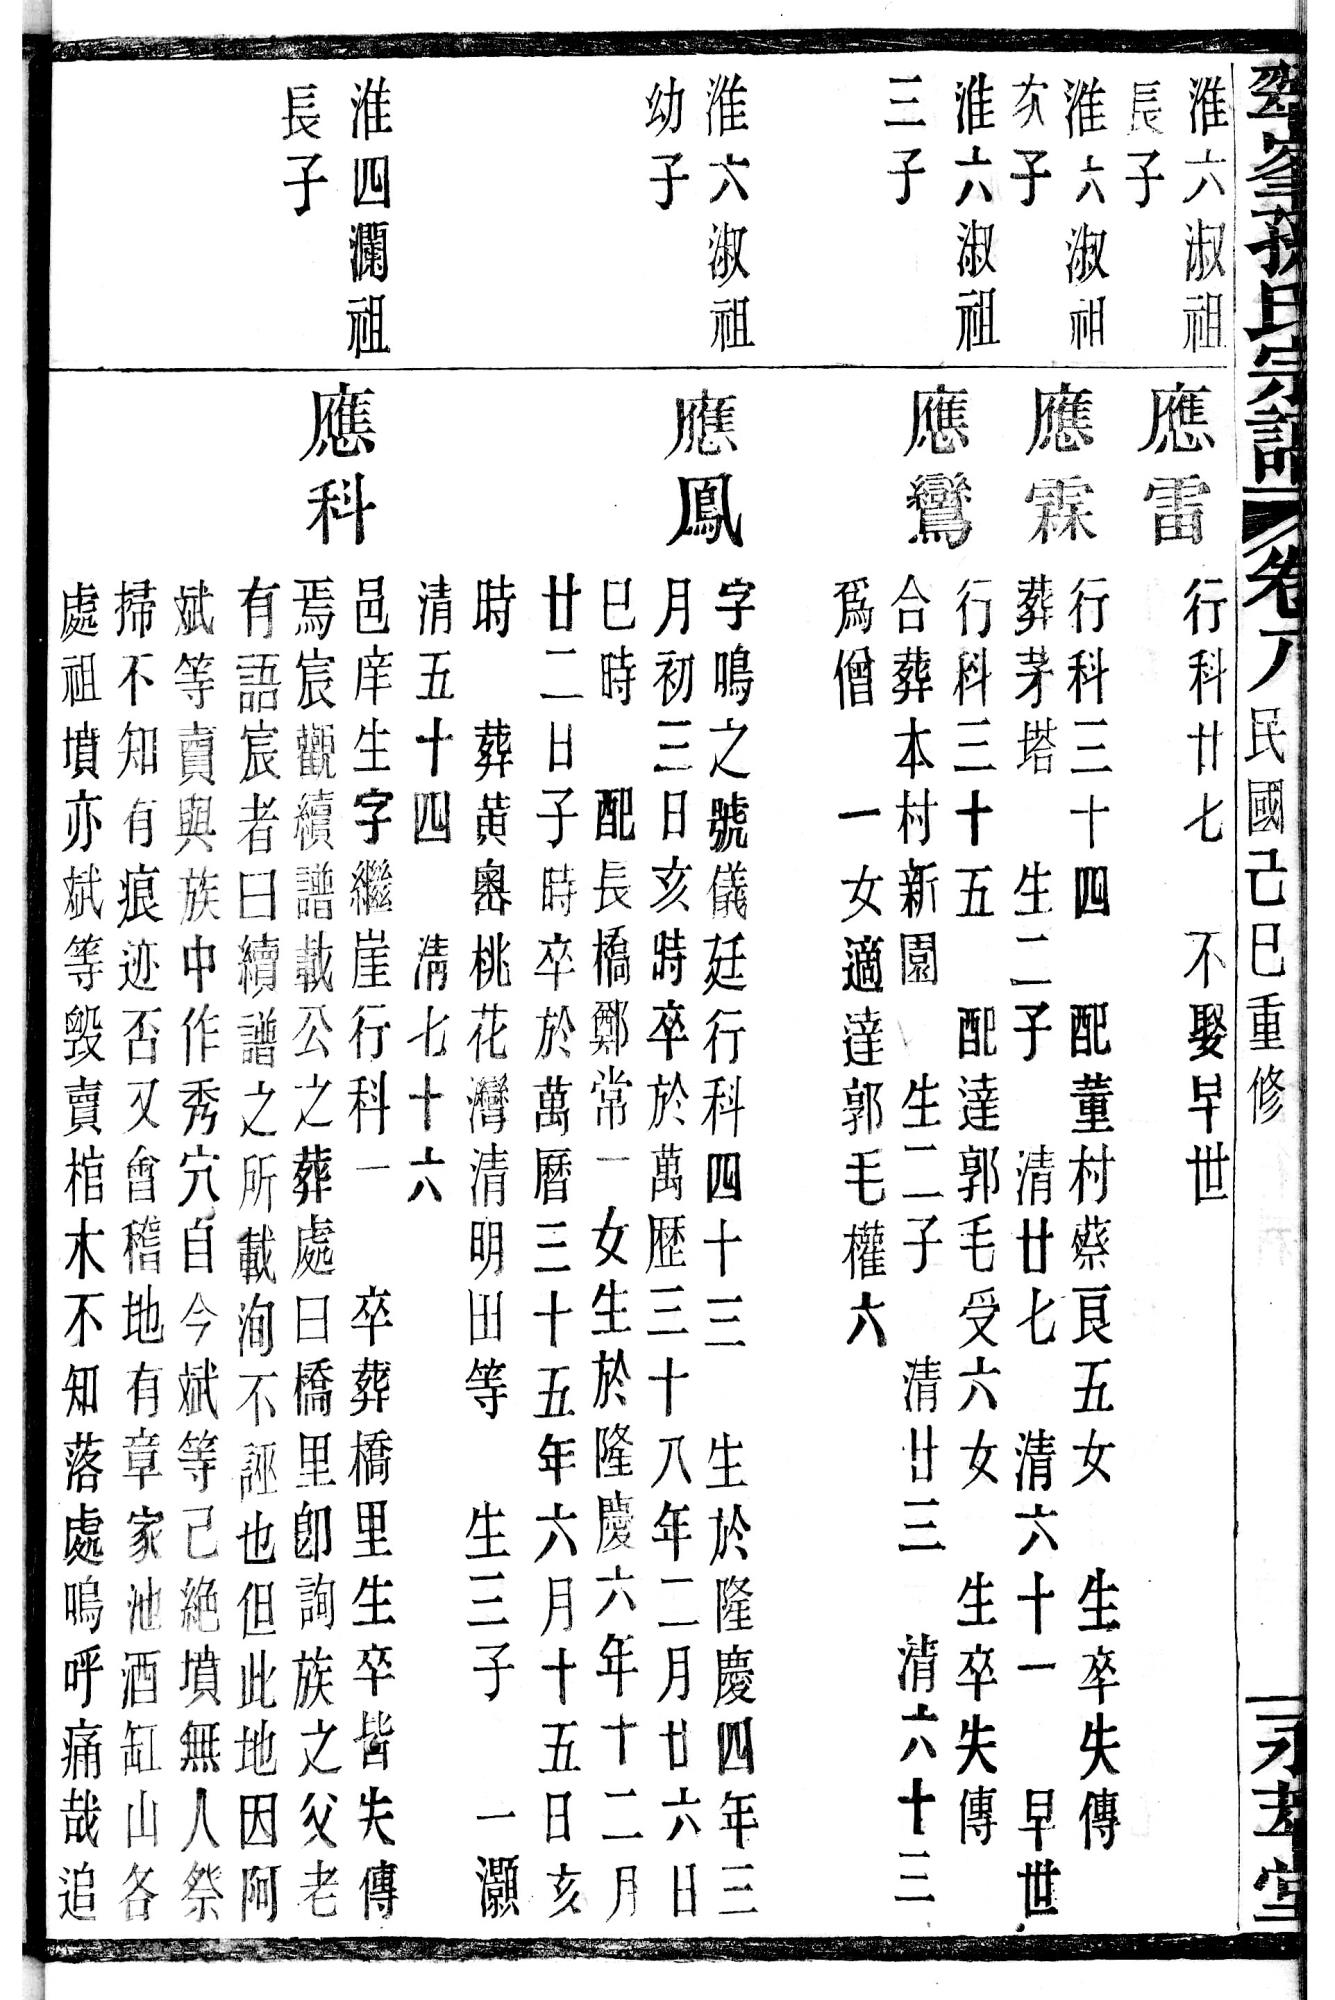 翠峯孫氏宗譜 卷八 民國己巳重修 永友堂
淮六淑祖
長子
應雷
行科廿七 不娶早世
淮六淑祖
次子
應霖
行科三十四 配董村蔡良五女 生卒失傳
葬茅塔 生二子 清廿七 清六十一 早世
淮六淑祖
三子
應鸞
行科三十五 配達郭毛受六女 生卒失傳
合葬本村新園 生二子 清廿三 清六十三
爲僧 一女適達郭毛權六
淮六淑祖
幼子
應鳳
字鳴之號儀廷行科四十三 生於隆慶四年三
月初三日亥時卒於萬歷三十八年二月廿六日
巳時 配長橋鄭常一女生於隆慶六年十二月
廿二日子時時卒於萬曆三十五年六月十五日亥
時 葬黃嶴桃花灣清明田等 生三子 一灝
清五十四 清七十六
淮四瀾祖
長子
應科
邑庠生字繼崖行科一 卒葬橋里生卒皆失傳
焉宸觀續譜載公之葬處曰橋里卽詢族之父老
有語宸者曰續譜之所載洵不誣也但此地因阿
斌等賣與族中作秀穴自今斌等己絶墳無人祭
掃不知有痕迹否又會稽地有章家池酒缸山各
處祖墳亦斌等毀賣棺木不知落處嗚呼痛哉追